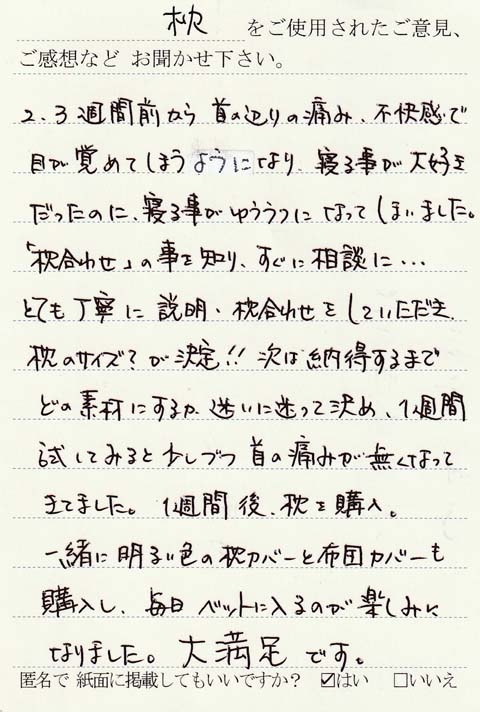 枕 をご使用されたご意見、
ご感想など お聞かせ下さい。
2、3週間前から 首の辺りの痛み、不快感で
目が覚めてしまうようになり、寝る事が大好き
だったのに、寝る事がゆううつになってしまいました。
「枕合わせ」の事を知り、すぐに相談に…
とても丁寧に説明・枕合わせをしていただき、
枕のサイズ?が決定!! 次は納得するまで
どの素材にするか、迷いに迷って決め、1週間
試してみると少しづつ首の痛みが無くなって
きてました。1週間後、枕を購入。
一緒に明るい色の枕カバーと布団カバーも
購入し、毎日ベットに入るのが楽しみに
なりました。大満足です。
匿名で 紙面に掲載してもいいですか? ☑はい □いいえ